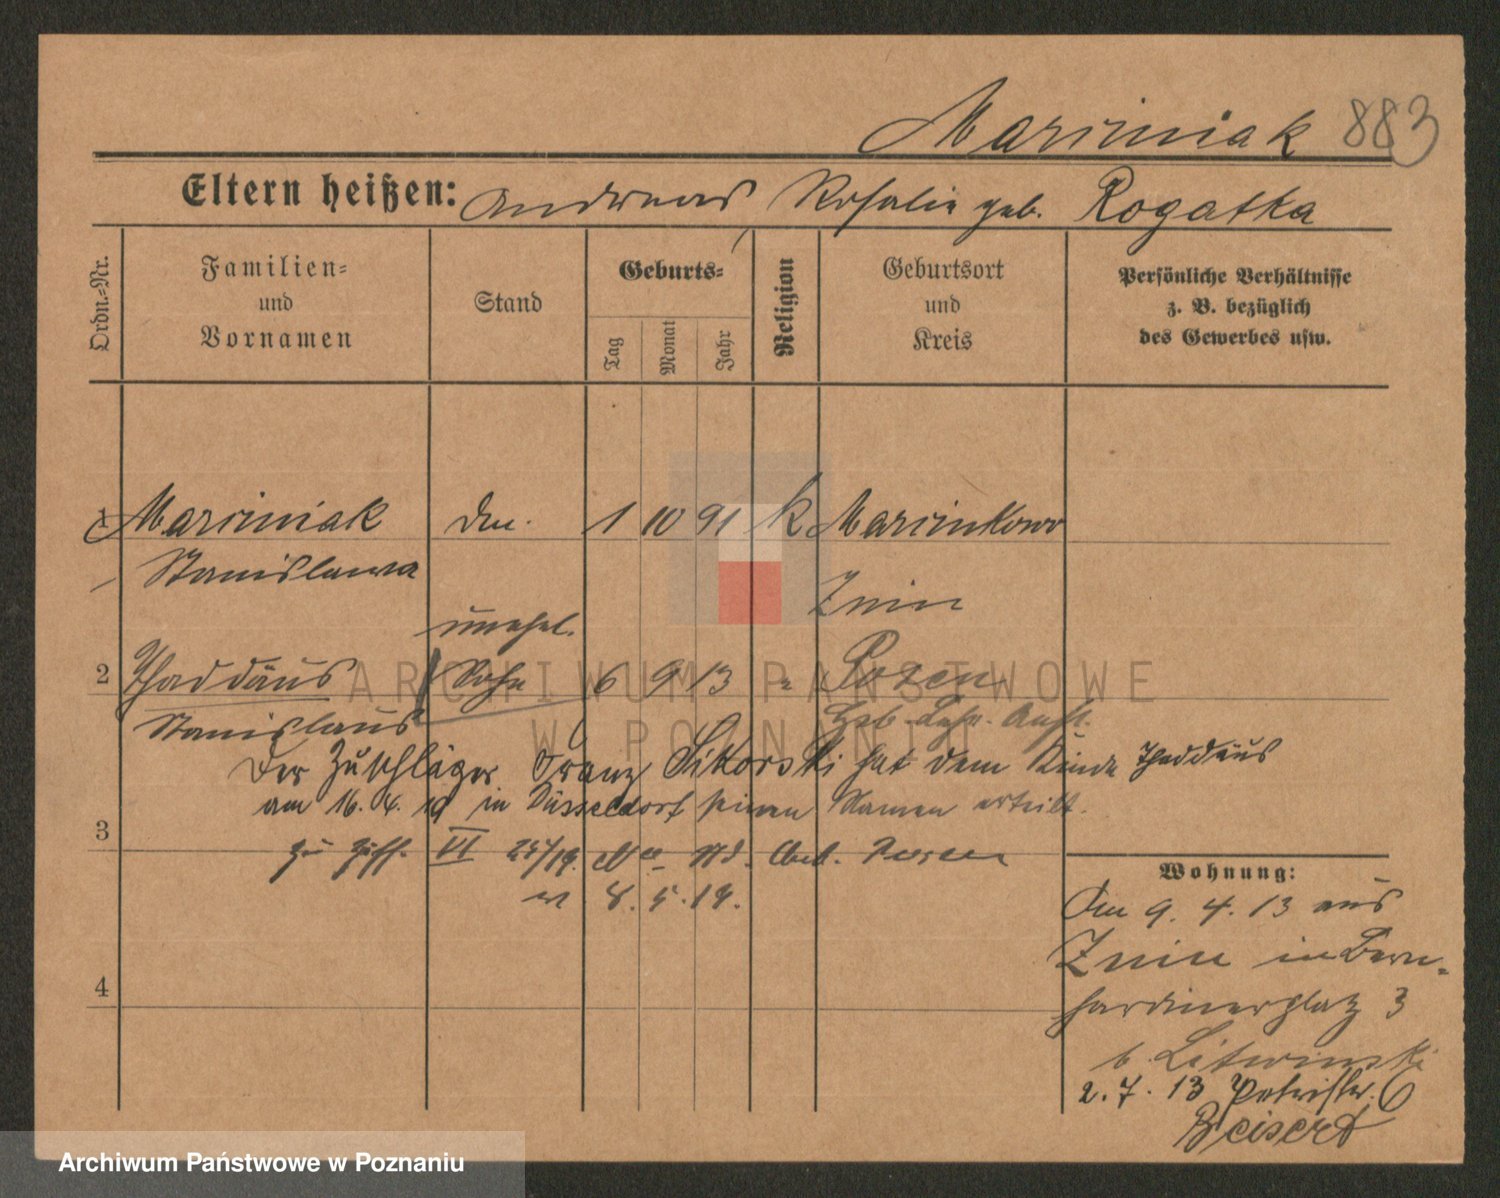 Marciniak 883
Eltern heißen: Andreas Rosalie geb. Rogatka
Ordn.-Nr.
Familien-
und
Vornamen
Stand
Geburts-
Tag
Monat
Jahr
Religion
Geburtsort
und
Kreis
Persönliche Verhältnisse
z. B. bezüglich
des Gewerbes usw.
1 Marciniak 1 10 91 k Marcinkowo
Stanislawa
Znin
unehel.
2 Thaddäus Sohn 6 9 13 " Posen
Stanislaus
Der Zuschläger Franz Sikorski hat dem Kinde Thaddäus
am 16. 4. 19 in Düsseldorf seinen Namen erteilt.
3
zu VI Posen
8. 5. 19.
Wohnung:
Am 9. 4. 13 aus
Znin in Bern-
hardinerplatz 3
b. Litwinski
2. 7. 13 Petristr. 6
Beisert
4
ARCHIWUM PAŃSTWOWE
W POZNANIU
Archiwum Państwowe w Poznaniu